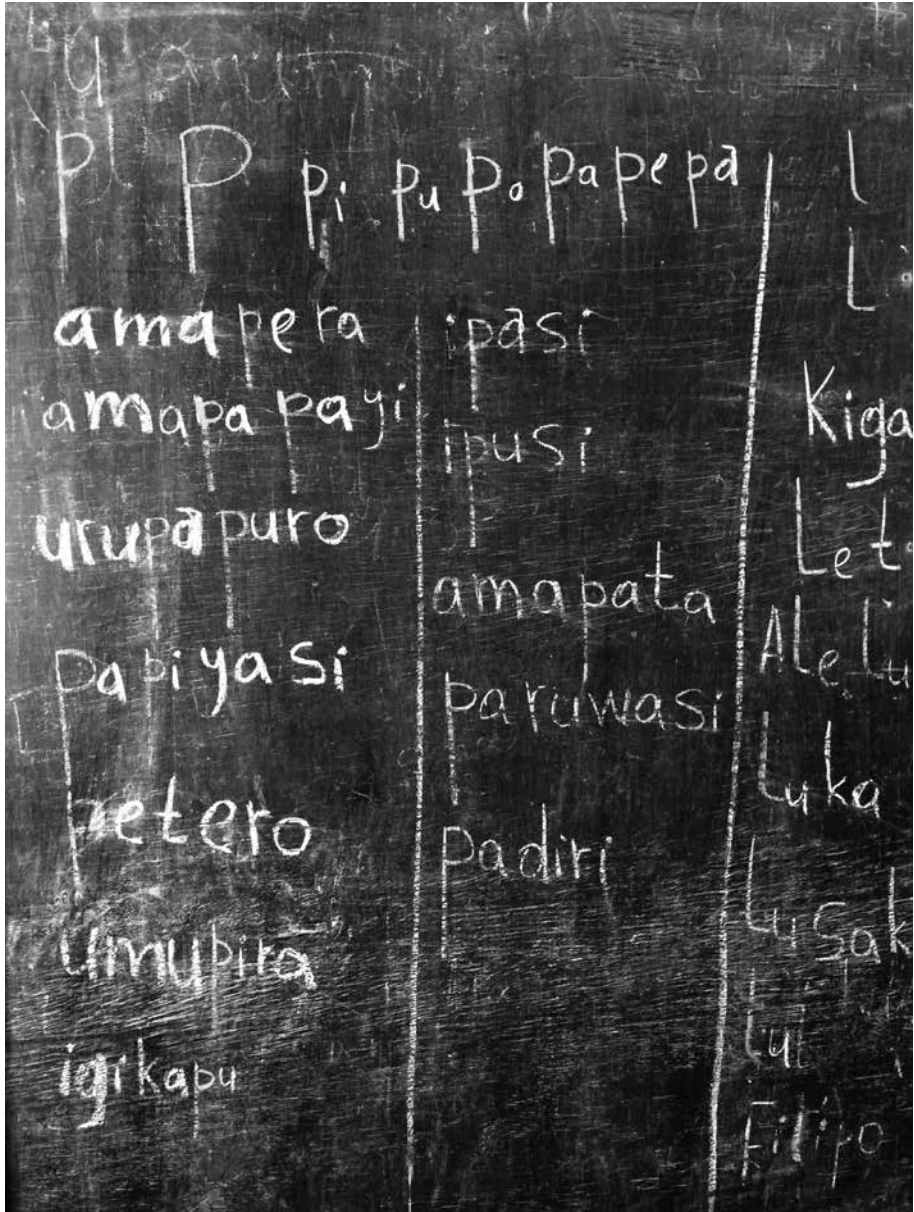 p P pi pu po pa pe pa
amapera
amapapayi
urupapuro
papiyasi
petero
umupira
igikapu
ipasi
ipusi
amapata
paruwasi
padiri
l
L
Kiga
Let
ALeLu
Luka
LuSak
Lul
Filipo